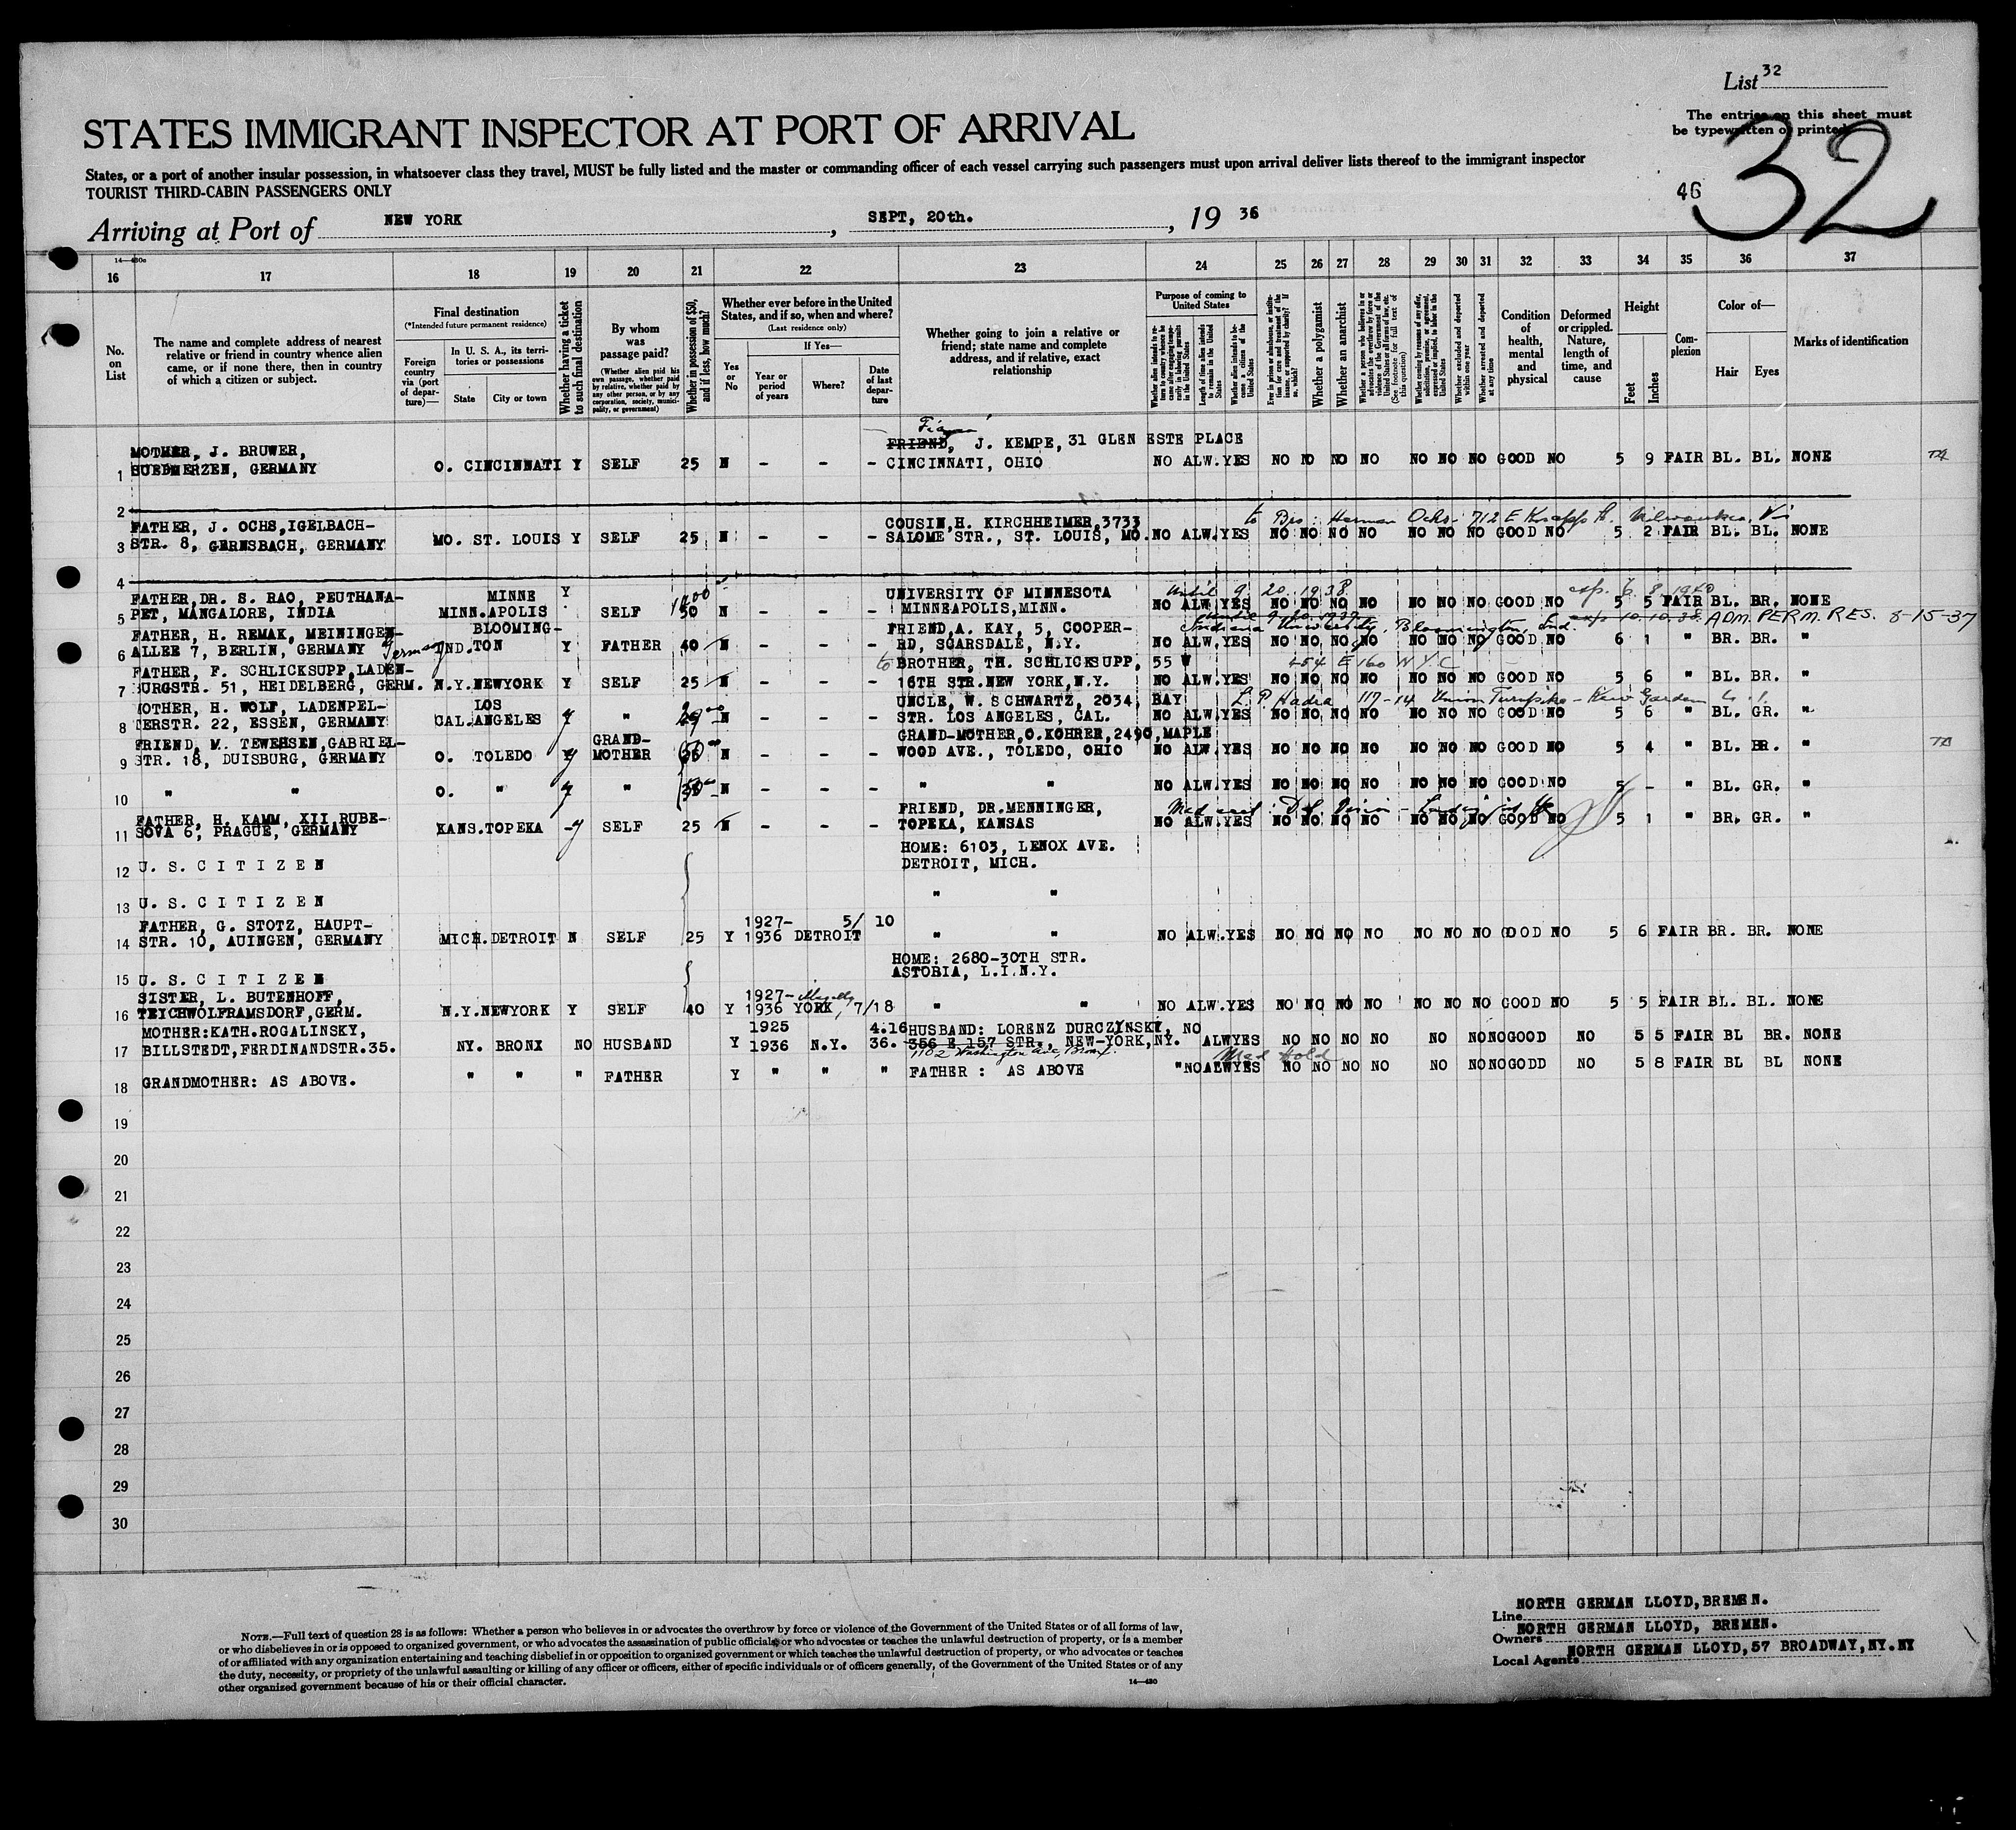 List 32
The entries on this sheet must
be typewritten or printed
32
46
STATES IMMIGRANT INSPECTOR AT PORT OF ARRIVAL
States, or a port of another insular possession, in whatsoever class they travel, MUST be fully listed and the master or commanding officer of each vessel carrying such passengers must upon arrival deliver lists thereof to the immigrant inspector
TOURIST THIRD-CABIN PASSENGERS ONLY
Arriving at Port of NEW YORK, SEPT, 20th., 19 36
16 17 18 19 20 21 22 23 24 25 26 27 28 29 30 31 32 33 34 35 36 37
No. on List
The name and complete address of nearest relative or friend in country whence alien came, or if none there, then in country of which a citizen or subject.
Final destination
(*Intended future permanent residence)
Foreign country via (port of departure)—
In U. S. A., its territories or possessions
State City or town
Whether having a ticket to such final destination
By whom was passage paid?
(Whether alien paid his own passage, whether paid by relative, whether paid by any other person, or by any corporation, society, municipality, or government)
Whether in possession of $50, and if less, how much?
Whether ever before in the United States, and if so, when and where?
(Last residence only)
Yes or No
If Yes—
Year or period of years
Where?
Date of last departure
Whether going to join a relative or friend; state name and complete address, and if relative, exact relationship
Purpose of coming to United States
Length of time alien intends to remain in the United States
Whether alien intends to become a citizen of the United States
Whether a polygamist
Whether an anarchist
Condition of health, mental and physical
Deformed or crippled. Nature, length of time, and cause
Height
Feet Inches
Complexion
Color of—
Hair Eyes
Marks of identification
MOTHER, J. BRUWER, FRIEND, J. KEMPE, 31 GLEN ESTE PLACE
1 SUEDMERZEN, GERMANY O. CINCINNATI Y SELF 25 N - - - CINCINNATI, OHIO NO ALW. YES NO NO NO NO NO NO NO GOOD NO 5 9 FAIR BL. BL. NONE
2
FATHER, J. OCHS, IGELBACH- COUSIN, H. KIRCHHEIMER, 3733 to Bro: Herman Ochs - 712 E Knapp St. Milwaukee, Wis
3 STR. 8, GERNSBACH, GERMANY MO. ST. LOUIS Y SELF 25 N - - - SALOME STR., ST. LOUIS, MO. NO ALW. YES NO NO NO NO NO NO NO GOOD NO 5 2 FAIR BL. BL. NONE
4
FATHER, DR. S. RAO, PEUTHANA- MINNE Y UNIVERSITY OF MINNESOTA Until 9 20 1938 exp. 6 8 1940
5 PET, MANGALORE, INDIA MINN. APOLIS SELF 50 N - - - MINNEAPOLIS, MINN. NO ALW. YES NO NO NO NO NO NO NO GOOD NO 5 5 FAIR BL. BR. NONE
FATHER, H. REMAK, MEININGEN- BLOOMING- FRIEND, A. KAY, 5, COOPER- Indiana University, Bloomington, Ind. ADM. PERM. RES. 8-15-37
6 ALLEE 7, BERLIN, GERMANY Germany IND. TON Y FATHER 40 N - - - RD, SCARSDALE, N.Y. NO ALW. YES NO NO NO NO NO NO NO GOOD NO 6 1 " BR. BR. "
FATHER, F. SCHLICKSUPP, LADEN- to BROTHER, TH. SCHLICKSUPP, 55 W 454 E 160 N Y C
7 BURGSTR. 51, HEIDELBERG, GERM. N.Y. NEWYORK Y SELF 25 N - - - 16TH STR. NEW YORK, N.Y. NO ALW. YES NO NO NO NO NO NO NO GOOD NO 5 6 " BL. BR. "
MOTHER, H. WOLF, LADENPEL- LOS UNCLE, W. SCHWARTZ, 2034, BAY 117-14 Union Turnpike - Kew Garden L. I.
8 TERSTR. 22, ESSEN, GERMANY CAL. ANGELES y " N - - - STR. LOS ANGELES, CAL. NO ALW. YES NO NO NO NO NO NO NO GOOD NO 5 6 " BL. GR. "
FRIEND, M. TEWEHSEN, GABRIEL- GRAND- GRAND-MOTHER, O. KOHRER, 2490, MAPLE
9 STR. 18, DUISBURG, GERMANY O. TOLEDO y MOTHER N - - - WOOD AVE., TOLEDO, OHIO NO ALW. YES NO NO NO NO NO NO NO GOOD NO 5 4 " BL. BR. "
10 " " O. " y " N - - - " " NO ALW. YES NO NO NO NO NO NO NO GOOD NO 5 - " BL. GR. "
FATHER, H. KAMM, XII RUBE- FRIEND, DR. MENNINGER,
11 SOVA 6, PRAGUE, GERMANY KANS. TOPEKA y SELF 25 N - - - TOPEKA, KANSAS NO ALW. YES NO NO NO NO NO NO NO GOOD NO 5 1 " BR. GR. "
HOME: 6103, LENOX AVE.
12 U. S. CITIZEN DETROIT, MICH.
13 U. S. CITIZEN " "
FATHER, G. STOTZ, HAUPT- 1927- 5/ 10
14 STR. 10, AUINGEN, GERMANY MICH. DETROIT N SELF 25 Y 1936 DETROIT " " NO ALW. YES NO NO NO NO NO NO NO GOOD NO 5 6 FAIR BR. BR. NONE
HOME: 2680-30TH STR.
15 U. S. CITIZEN ASTORIA, L.I.N.Y.
SISTER, L. BUTENHOFF, 1927-
16 TEICHWOLFRAMSDORF, GERM. N.Y. NEWYORK Y SELF 40 Y 1936 YORK, 7/18 " " NO ALW. YES NO NO NO NO NO NO NO GOOD NO 5 5 FAIR BL. BL. NONE
MOTHER: KATH. ROGALINSKY, 1925 4.16 HUSBAND: LORENZ DURCZYNSKI, NO
17 BILLSTEDT, FERDINANDSTR. 35. NY. BRONX NO HUSBAND Y 1936 N.Y. 36. 356 E 157 STR., NEW-YORK, NY. ALWYES NO NO NO NO NO NO NO GOOD NO 5 5 FAIR BL BR. NONE
1102 Washington Ave, Bronx. Med Hold
18 GRANDMOTHER: AS ABOVE. " " " FATHER Y " " " FATHER : AS ABOVE "NOALWYES NO NO NO NO NO NO NO GODD NO 5 8 FAIR BL BL NONE
19
20
21
22
23
24
25
26
27
28
29
30
NOTE.—Full text of question 28 is as follows: Whether a person who believes in or advocates the overthrow by force or violence of the Government of the United States or of all forms of law,
or who disbelieves in or is opposed to organized government, or who advocates the assassination of public officials, or who advocates or teaches the unlawful destruction of property, or is a member
of or affiliated with any organization entertaining and teaching disbelief in or opposition to organized government or which teaches the unlawful destruction of property, or who advocates or teaches
the duty, necessity, or propriety of the unlawful assaulting or killing of any officer or officers, either of specific individuals or of officers generally, of the Government of the United States or of any
other organized government because of his or their official character.
14—430
Line NORTH GERMAN LLOYD, BREMEN.
Owners NORTH GERMAN LLOYD, BREMEN.
Local Agents NORTH GERMAN LLOYD, 57 BROADWAY, NY. NY